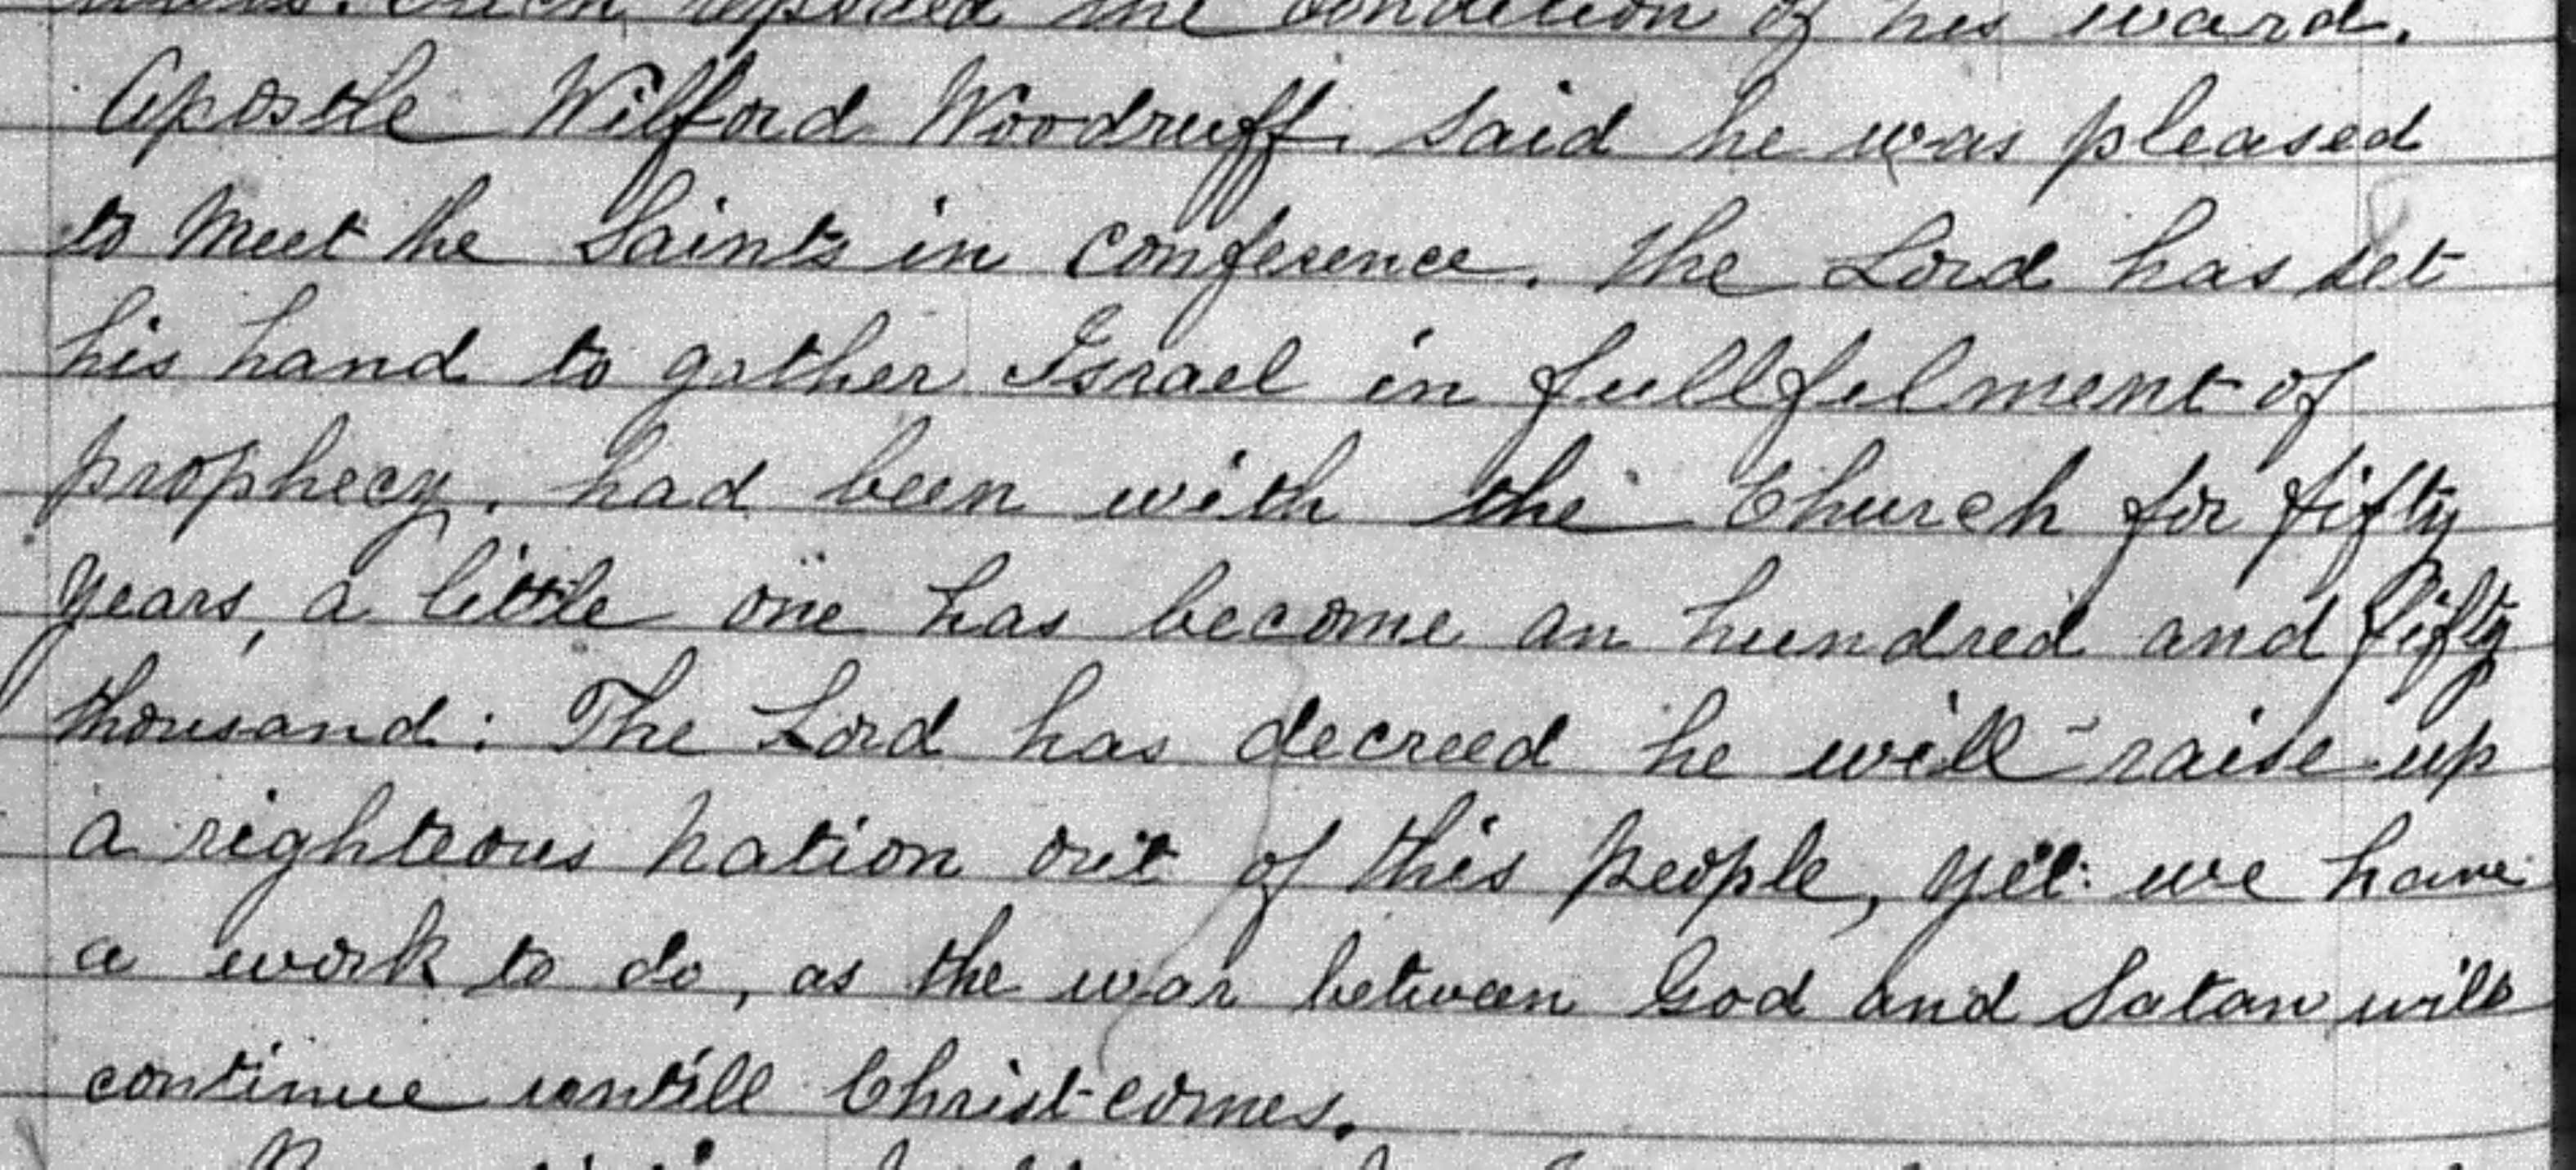 the condition of his ward.
Apostle Wilford Woodruff. said he was pleased
to meet the Saints in conference. the Lord has set
his hand to gather Israel in fullfilment of
prophecy. had been with the Church for fifty
years, a little one has become an hundred and fifty
thousand: The Lord has decreed he will raise up
a righteous nation out of this people, yet we have
a work to do, as the war between God and Satan will
continue untill Christ comes.